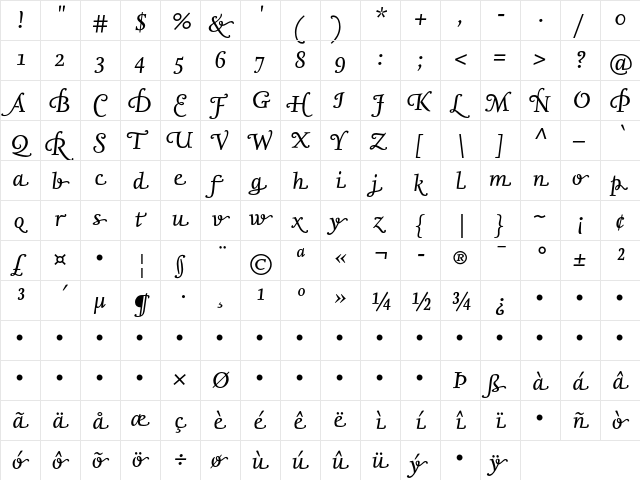 ! " # $ % & ' ( ) * + , - . / 0
1 2 3 4 5 6 7 8 9 : ; < = > ? @
A B C D E F G H I J K L M N O P
Q R S T U V W X Y Z [ \ ] ^ _ `
a b c d e f g h i j k l m n o p
q r s t u v w x y z { | } ~ ¡ ¢
£ ¤ • ¦ § ¨ © ª « ¬ - ® ¯ ° ± ²
³ ´ µ ¶ · ¸ ¹ º » ¼ ½ ¾ ¿ • • •
• • • • • • • • • • • • • • • •
• • • • × Ø • • • • • Þ ß à á â
ã ä å æ ç è é ê ë ì í î ï • ñ ò
ó ô õ ö ÷ ø ù ú û ü ý • ÿ